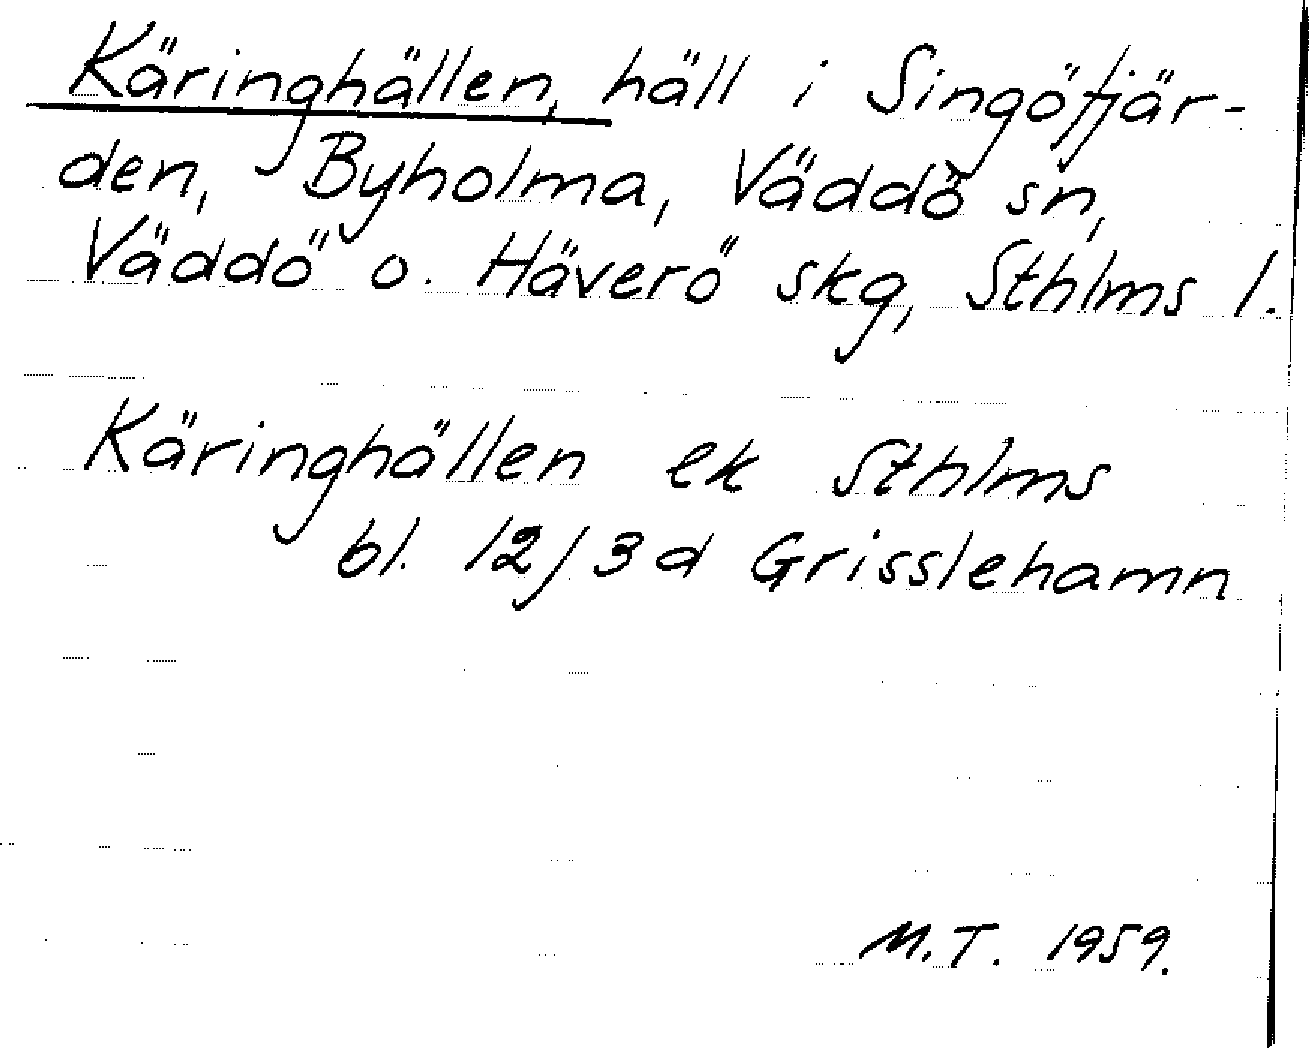 Käringhällen, häll i Singöfjär-
den, Byholma, Väddö sn,
Väddö o. Häverö skg, Sthlms l.
Käringhällen ek Sthlms
bl. 12/3d Grisslehamn
M.T. 1959.